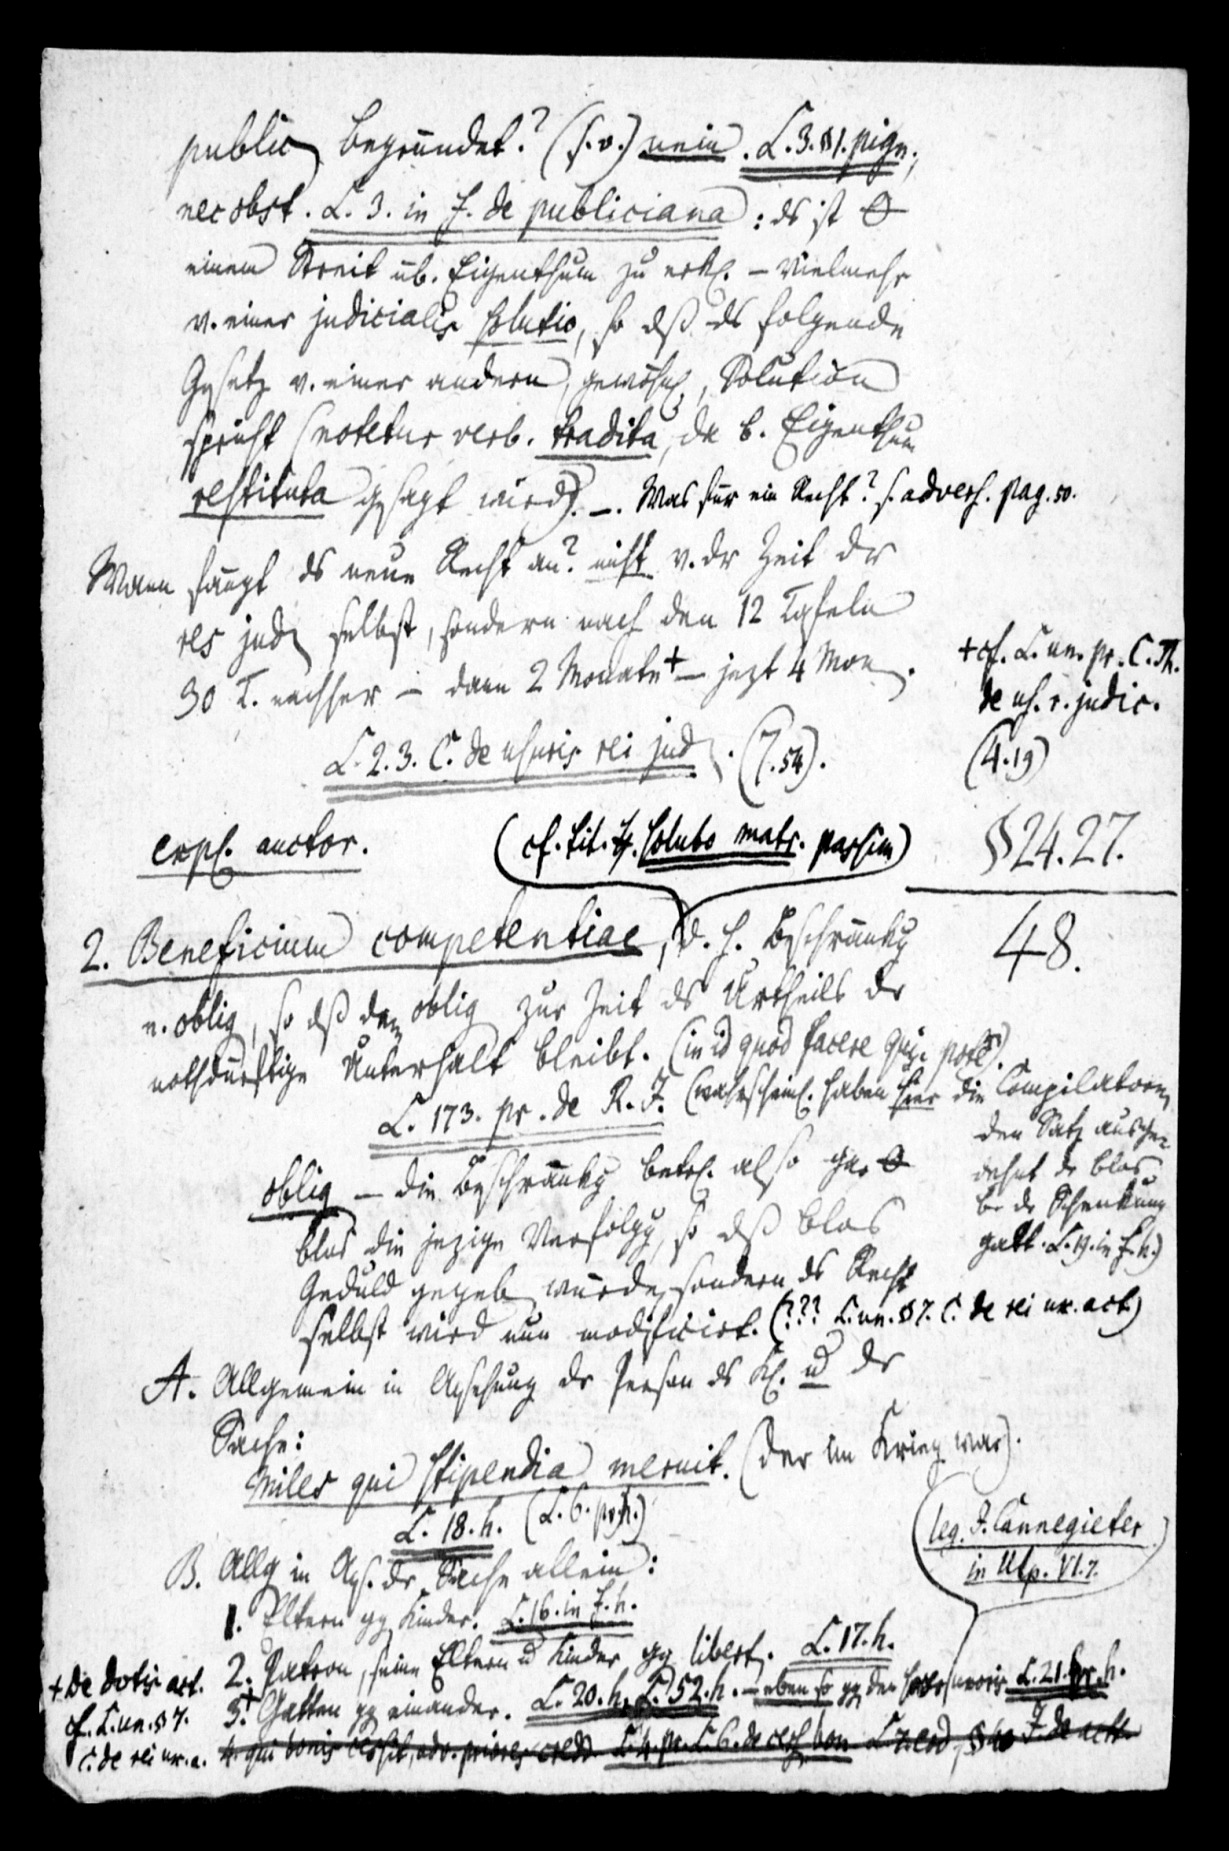 public begründet? (s. v.) nein. L. 3. §1. pign.;
nec obst. L. 3. in f. de publiciana: ds ist
einem Streit üb. Eigenthum zu erkl. – vielmehr
v. einer judicialis solutio, so dß ds folgende
Gesetz v. einer andern, gewöhnl., Solution
spricht (notetur verb. tradita, da b. Eigenthum
restituta gesagt wird). –. Was für ein Recht? s. advers. pag. 50.
Wann fängt ds neue Recht an? nicht v. dr Zeit dr
res jud selbst, sondern nach den 12 Tafeln
30 T. nachher – dann 2 Monate + – jezt 4 Mon.
+ cf. L. un. pr. C. Th.
de us. r. judic.
(4.19)
L. 2. 3. C. de usuris rei jud. (7.54).
expl. auctor.
(cf. tit. ff. soluto matr. passim)
§ 24. 27.
48.
2. Beneficium competentiae, d. h. Beschränkg
v. oblig, so dß dem oblig zur Zeit ds Urtheils dr
nothdürftige Unterhalt bleibt. (in id quod facere potest).
L. 173. pr. de R. J. (wahrscheinl. haben hier die Compilatoren
den Satz ausge-
dehnt dr blos
be dr Schenkung
galt. L. 19. in f. h.)
oblig – die Beschränkg betr. also gar
blos die jezige Verfolgg, so dß blos
Geduld gegeb würde, sondern ds Recht
selbst wird nun modificirt. (??? L. un. §7. C. de rei ux. act.)
A. Allgemein in Ansehung dr Person ds Kl. ud dr
Sache:
Miles qui stipendia meruit. (der im Krieg war).
L. 18. h. (L. 6. pr. h.)
(leg. J. Cannegieter
in Ulp. VI. 7.
B. Allg in Ans. dr Sache allein:
1. Eltern gg Kinder. L. 16. in f. h.
2. Patron, seine Eltern ud Kinder gg libert. L. 17. h.
+ de dotis act.
cf. L. un. §7.
C. de rei ux. a.
3.+ Gatten gg einander. L. 20. h. L. 52. h. – eben so gg den uxoris L. 21. h.
4. qui bonis cessit, adv. priores cred. L. 4. pr. L. 6. de cess bon L 7. eod, §40 J. de act.